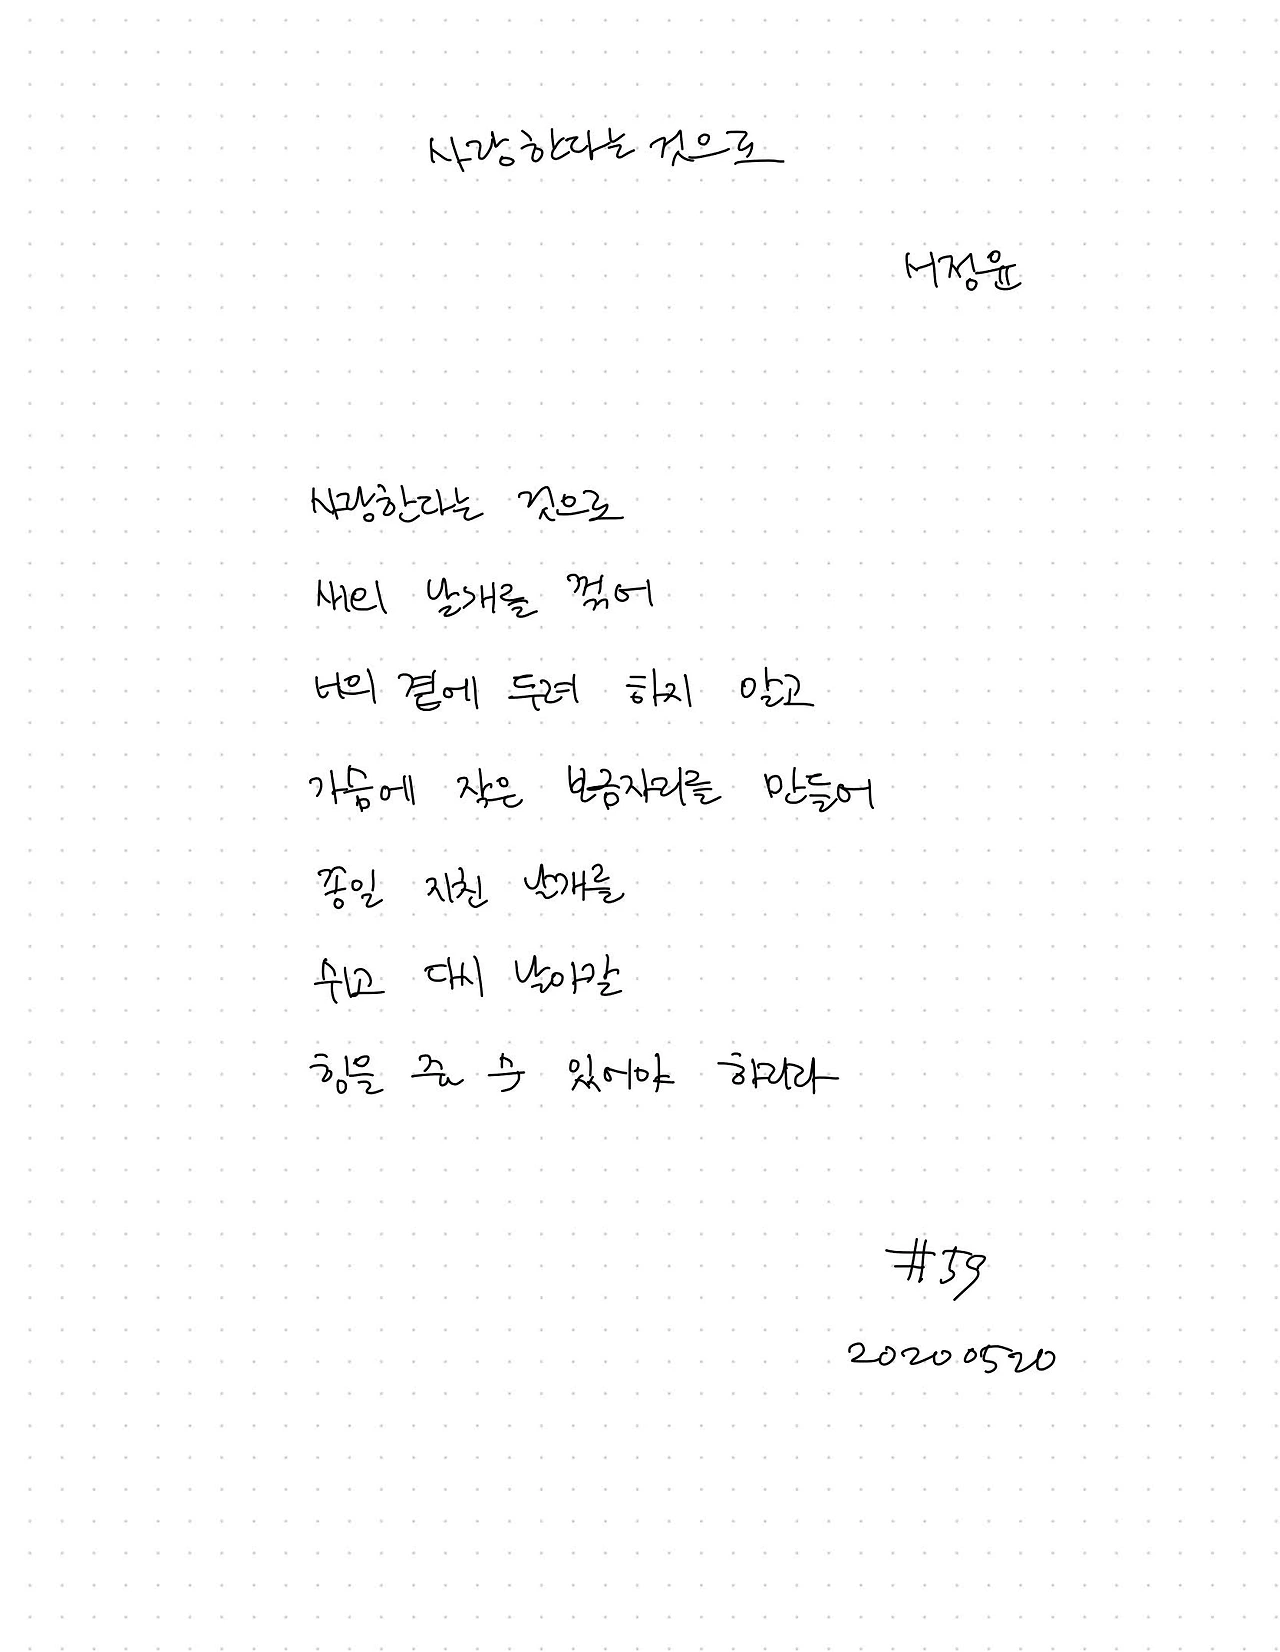 사랑한다는 것으로
서정윤
사랑한다는 것으로
새의 날개를 꺾어
너의 곁에 두려 하지 말고
가슴에 작은 보금자리를 만들어
종일 지친 날개를
쉬고 다시 날아갈
힘을 줄 수 있어야 하리라
#59
20200520